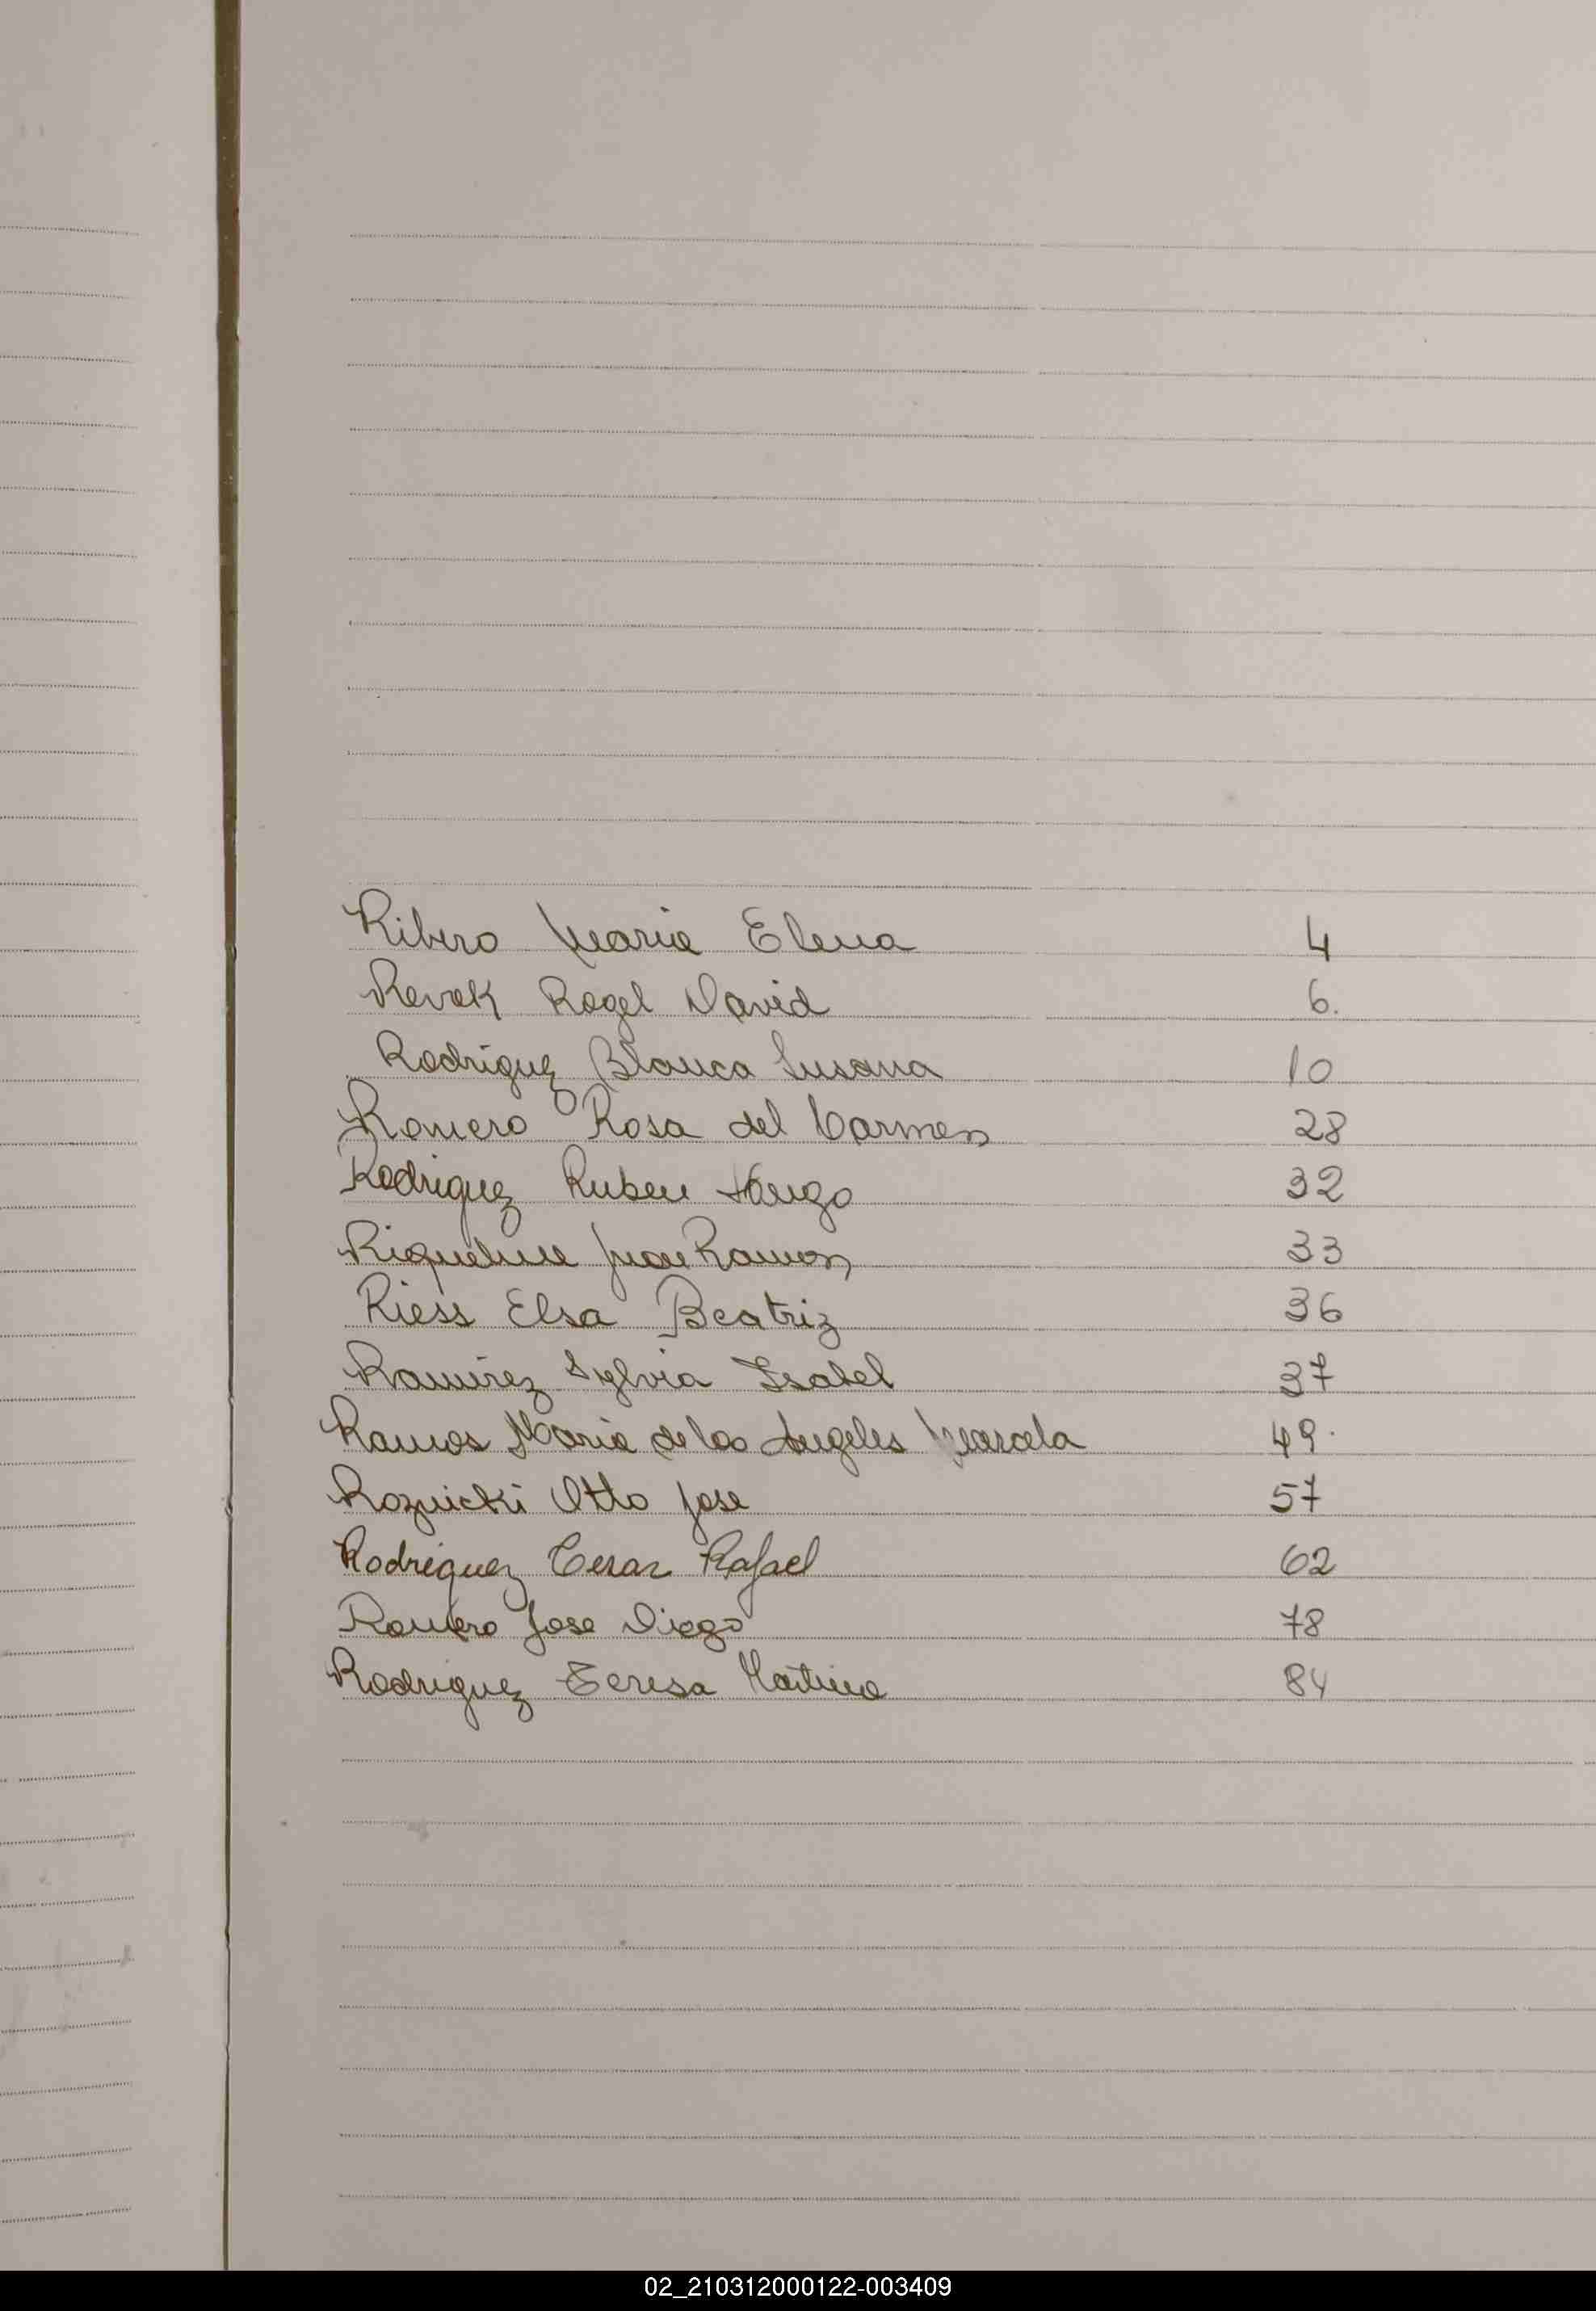 Ribero Maria Elena 4
Revek Rogel David 6.
Rodriguez Blanca Susana 10
Romero Rosa del Carmen 28
Rodriguez Ruben Hugo 32
Riquelme Juan Ramon 33
Riess Elsa Beatriz 36
Ramirez Sylvia Isabel 37
Ramos Maria de los Angeles Marcela 49.
Roznicki Otto Jose 57
Rodriguez Cesar Rafael 62
Romero Jose Diego 78
Rodriguez Teresa Martina 84
02_210312000122-003409